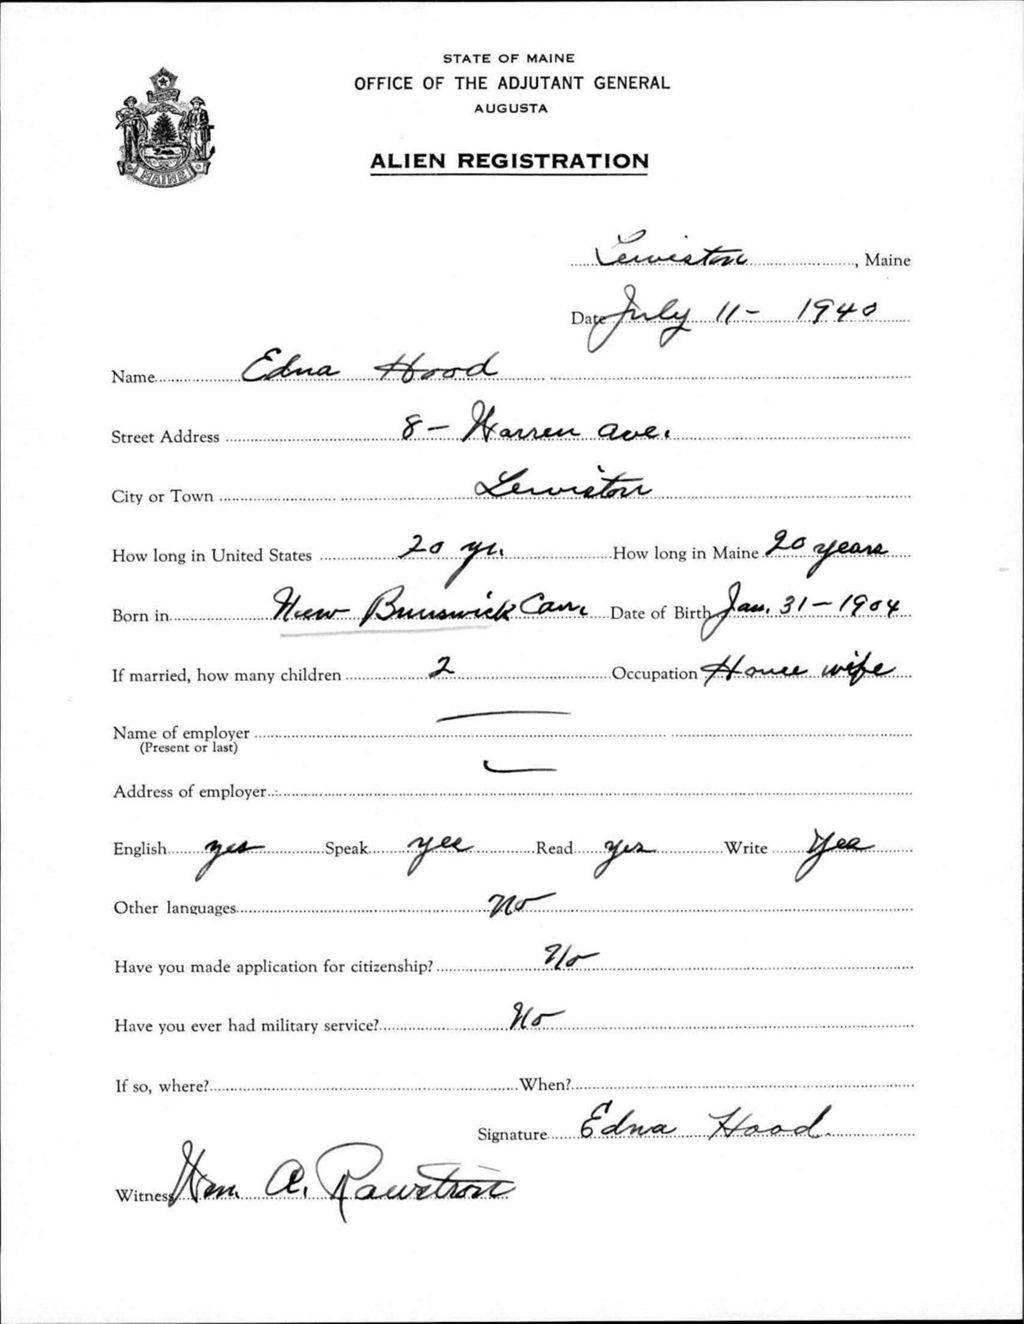 STATE OF MAINE
OFFICE OF THE ADJUTANT GENERAL
AUGUSTA
ALIEN REGISTRATION
MAINE
Lewiston, Maine
Date July 11- 1940
Name Edna Hood
Street Address 8 - Warren Ave.
City or Town Lewiston
How long in United States 20 yr. How long in Maine 20 years
Born in New Brunswick Can. Date of Birth Jan. 31 - 1904
If married, how many children 2 Occupation House wife
Name of employer —
(Present or last)
Address of employer —
English yes Speak yes Read yes Write Yes
Other languages No
Have you made application for citizenship? No
Have you ever had military service? No
If so, where? When?
Signature Edna Hood
Witness Wm. A. Rawstron